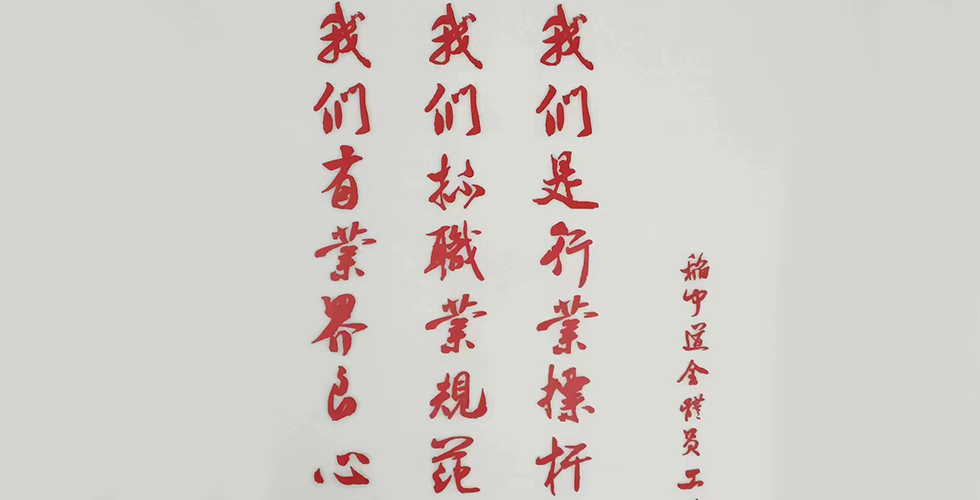 我们有業界良心
我们職業規范
我们是行業標杆
稻中道全體员工